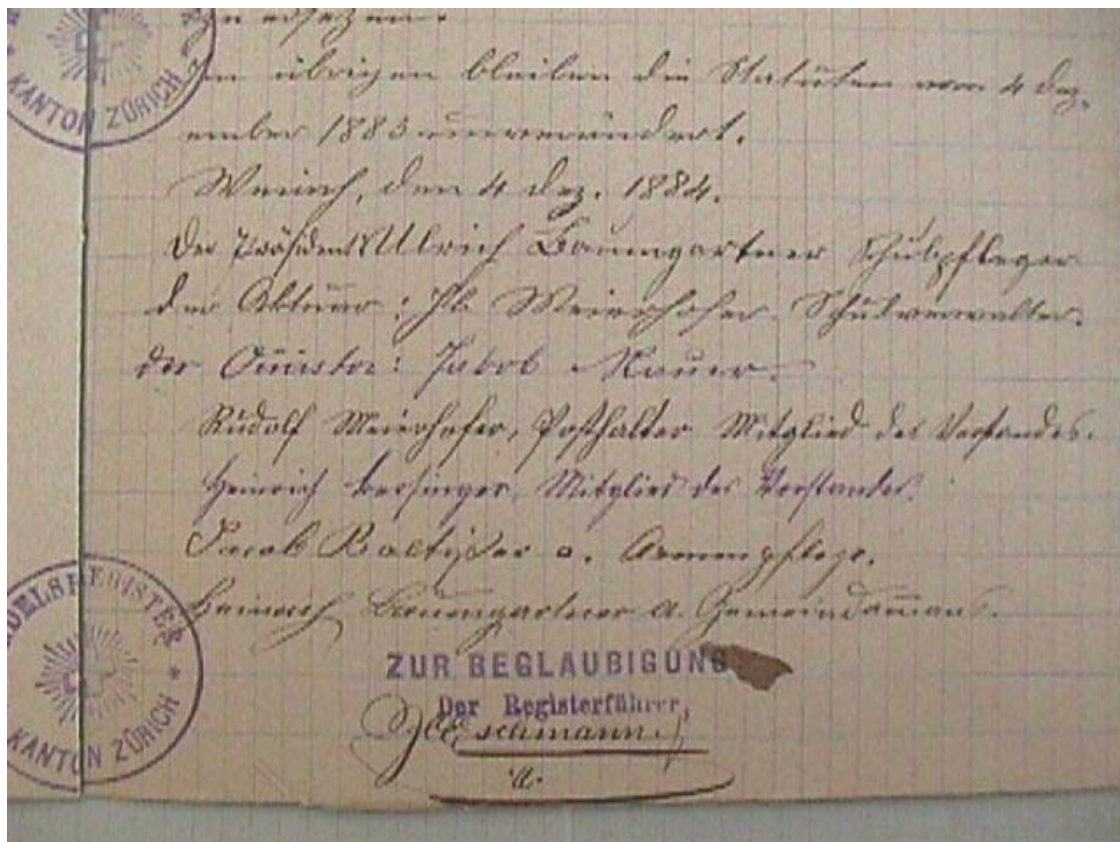 zu ersetzen.
Im übrigen bleiben die Statuten vom 4 Dez-
ember 1883 unverändert.
Weiach, den 4 Dez. 1884.
Der Präsident Ulrich Baumgartner Schulpfleger
der Aktuar: Hch. Meierhofer Schulverwalter.
der Quästor: Jakob Nauer.
Rudolf Meierhofer, Posthalter Mitglied des Vorstandes.
Heinrich Bersinger Mitglied des Vorstandes.
Jacob Baltisser a. Armenpflege.
Heinrich Baumgartner a. Gemeindamann.
ZUR BEGLAUBIGUNG
Der Registerführer,
Eschmann.
KANTON ZÜRICH
HANDELSREGISTER * KANTON ZÜRICH